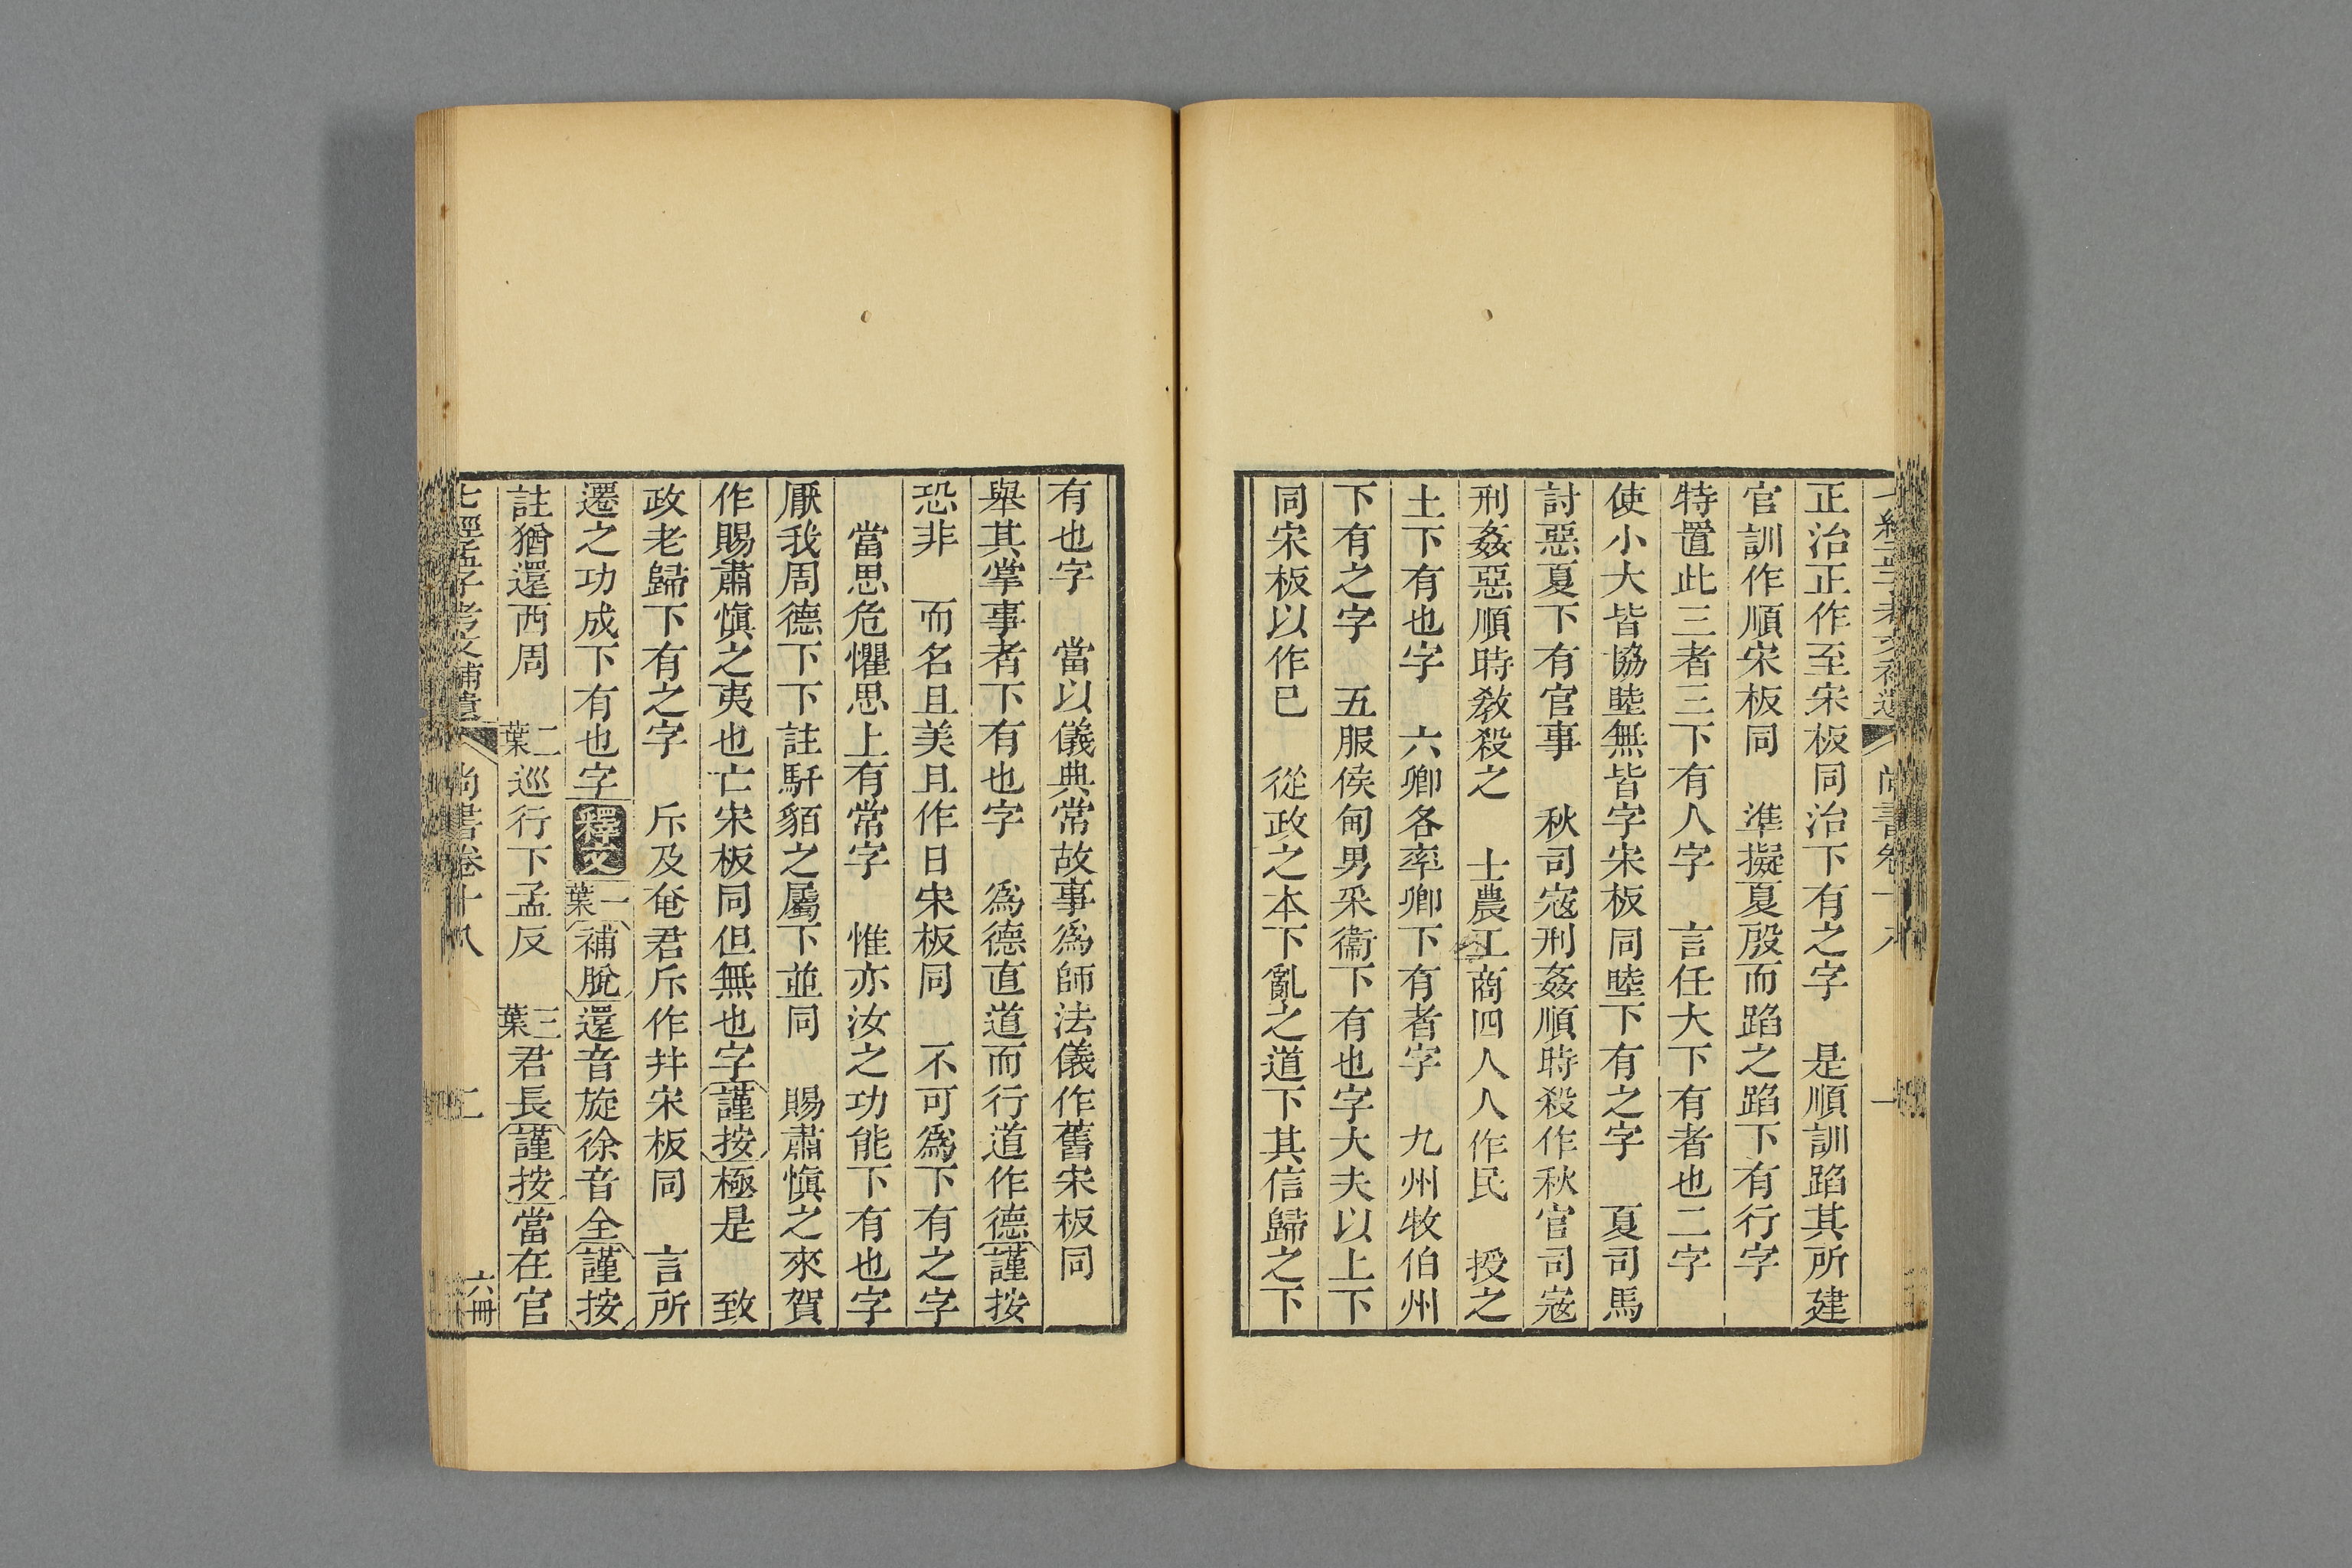 正治正作至宋板同治下有之字　是順訓蹈其所建
官訓作順宋板同　準擬夏殷而蹈之蹈下有行字
特置此三者三下有人字　言任大下有者也二字
使小大皆協睦無皆字宋板同睦下有之字　夏司馬
討惡夏下有官事　秋司寇刑姦順時殺作秋官司寇
刑姦惡順時敎殺之　士農工商四人人作民　授之
土下有也字　六卿各率卿下有者字　九州牧伯州
下有之字　五服侯甸男采衞下有也字大夫以上下
同宋板以作已　從政之本下亂之道下其信歸之下
有也字　當以儀典常故事爲師法儀作舊宋板同
舉其掌事者下有也字　爲德直道而行道作德謹按
恐非　而名且美且作日宋板同　不可爲下有之字
當思危懼思上有常字　惟亦汝之功能下有也字
厭我周德下下註馯貊之屬下並同　賜肅愼之來賀
作賜肅愼之夷也亡宋板同但無也字謹按極是　致
政老歸下有之字　斥及奄君斥作井宋板同　言所
遷之功成下有也字釋文一葉補脫還音旋徐音全謹按
註猶還西周　二葉巡行下孟反　三葉君長謹按當在官
七經孟子考文補遺　尚書卷十八　二　六冊